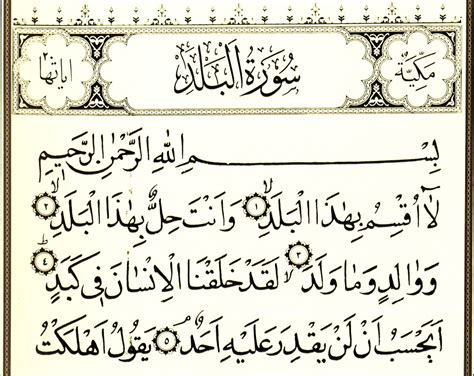 مكية سورة البلد اياتها ٢٠
بسم الله الرحمن الرحيم
لا أقسم بهذا البلد ١ وأنت حل بهذا البلد ٢
ووالد وما ولد ٣ لقد خلقنا الإنسان في كبد ٤
أيحسب أن لن يقدر عليه أحد ٥ يقول أهلكت